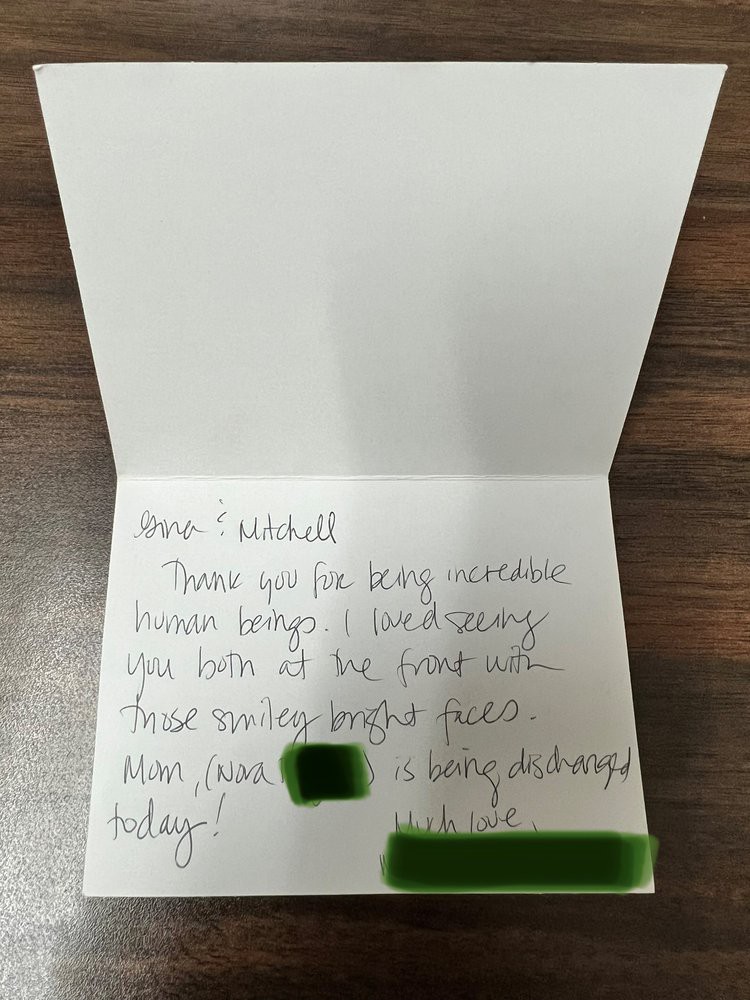 Gina & Mitchell
Thank you for being incredible
human beings. I loved seeing
you both at the front with
those smiley bright faces.
Mom, (Nora ) is being discharged
today!
Much love,